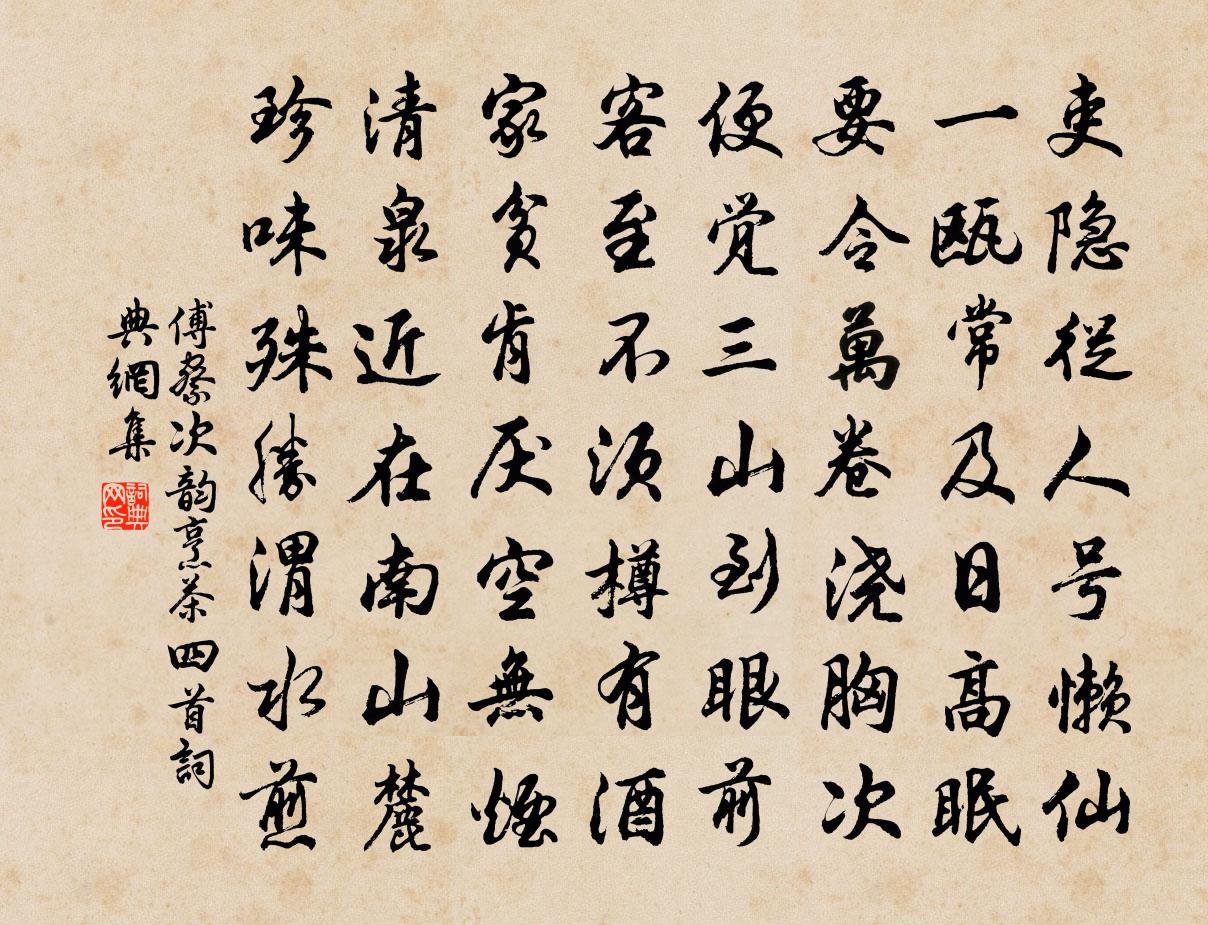 吏隐從人号懒仙
一瓯常及日高眠
要令萬卷浇胸次
便觉三山到眼前
客至不须樽有酒
家贫肯厌空無煙
清泉近在南山麓
珍味殊勝渭水煎
傅察次韵烹茶四首詞
典網集
詞典
网印